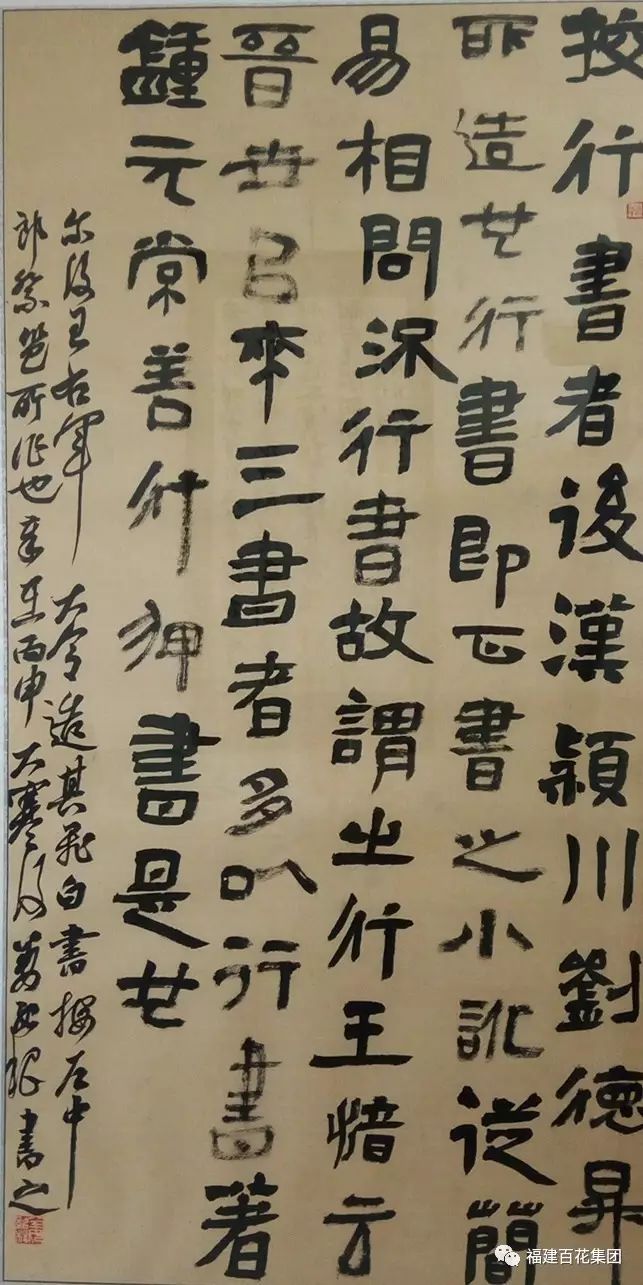 按行書者後漢潁川劉德昇
所造也行書即正書之小訛從簡
易相問流行書故謂之行王愔云
晉世以來工書者多以行書著
鍾元常善行押書是也
尔後王右軍 大令造其飛白書按左中
郎蔡邕所作也 丙申大寒後 書之
福建百花集团